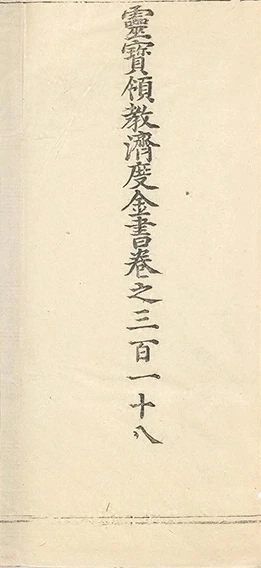 靈寶領教濟度金書卷之三百一十八